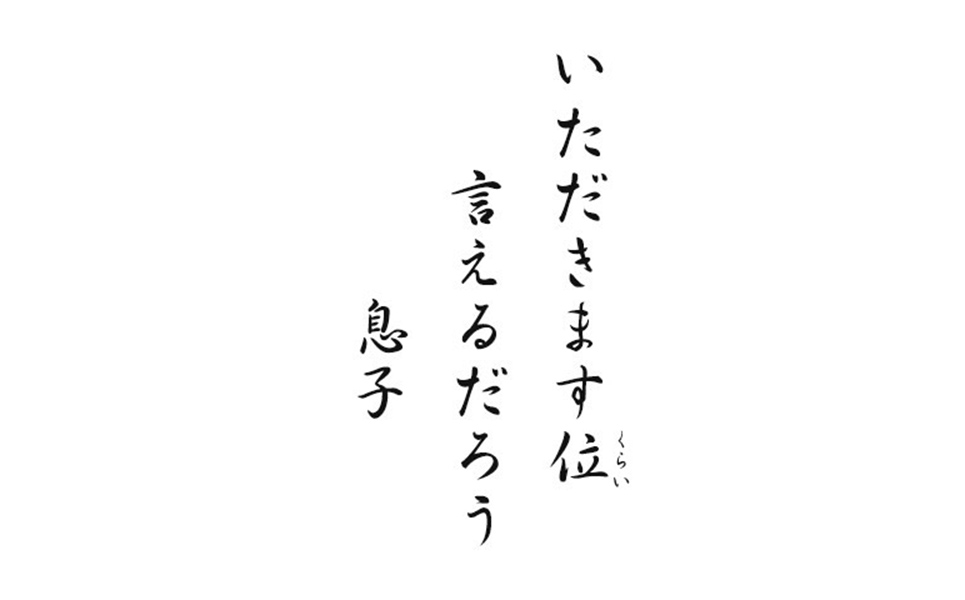 いただきます位
くらい
言えるだろう
息子